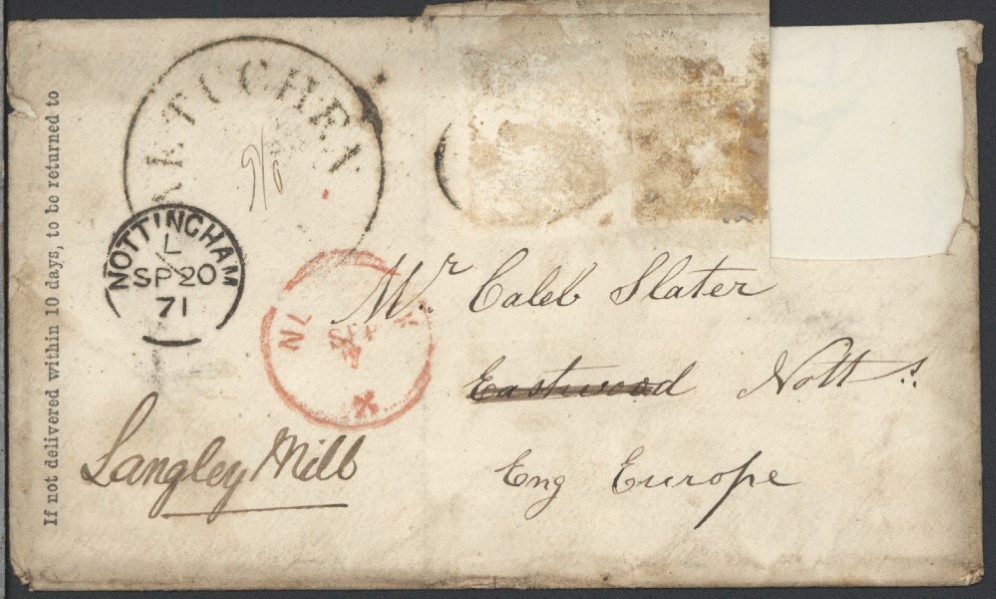 METUCHEN
If not delivered within 10 days, to be returned to
NOTTINGHAM
L
SP 20
71
Mr Caleb Slater
Eastwood Notts.
Eng Europe
Langley Mill